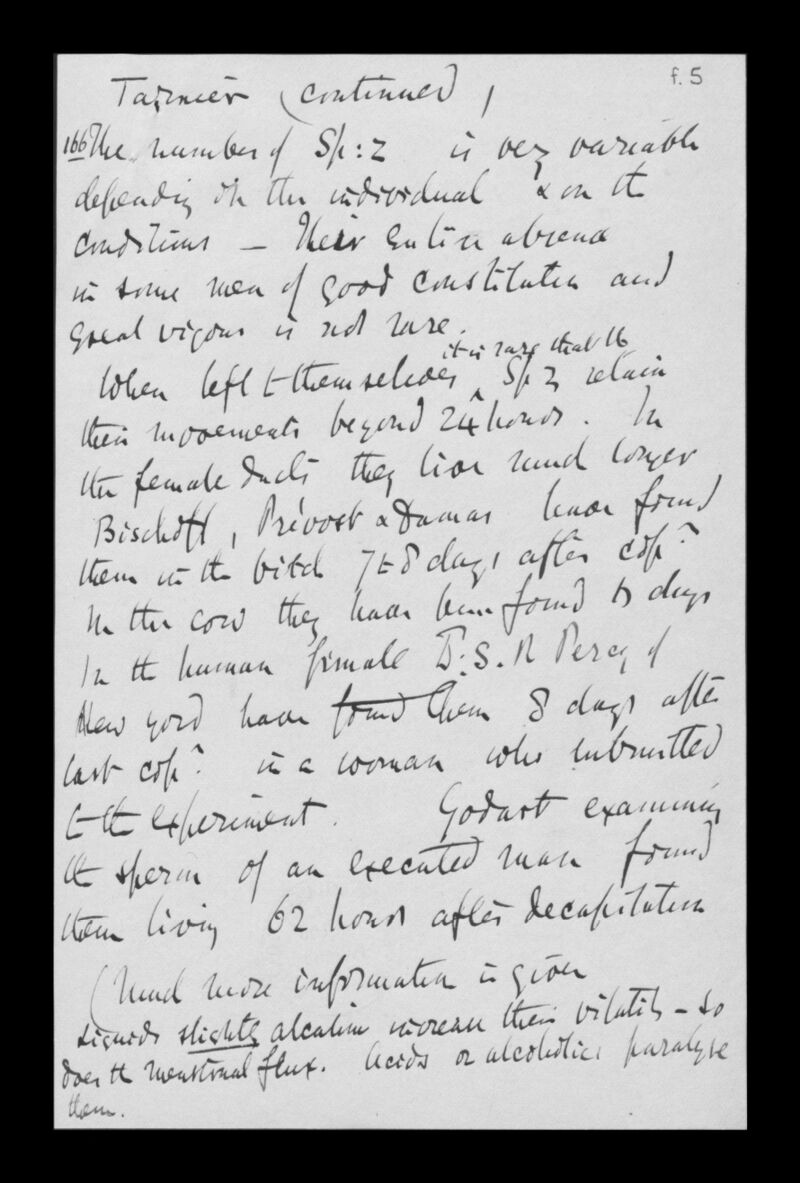 f. 5
Tarnier (continued)
166 The number of Sp:z is very variable
depending on the individual & on the
conditions — Their entire absence
in some men of good constitution and
great vigour is not rare.
it is rare that the
When left to themselves ^ Sp z retain
their movements beyond 24 hours. In
the female ducts they live much longer
Bischoff, Prévost & Dumas have found
them in the bitch 7 to 8 days after cop?
In the cow they have been found days
In the human female Dr. S. R Percy of
New york have found them 8 days after
last cop? in a woman who submitted
to the experiment. Godart examining
the sperm of an executed man found
them living 62 hours after decapitation
(Much more information is given
Liquids slightly alcaline increase their vitality – so
does the menstrual flux. Acids or alcoholics paralyse
them.